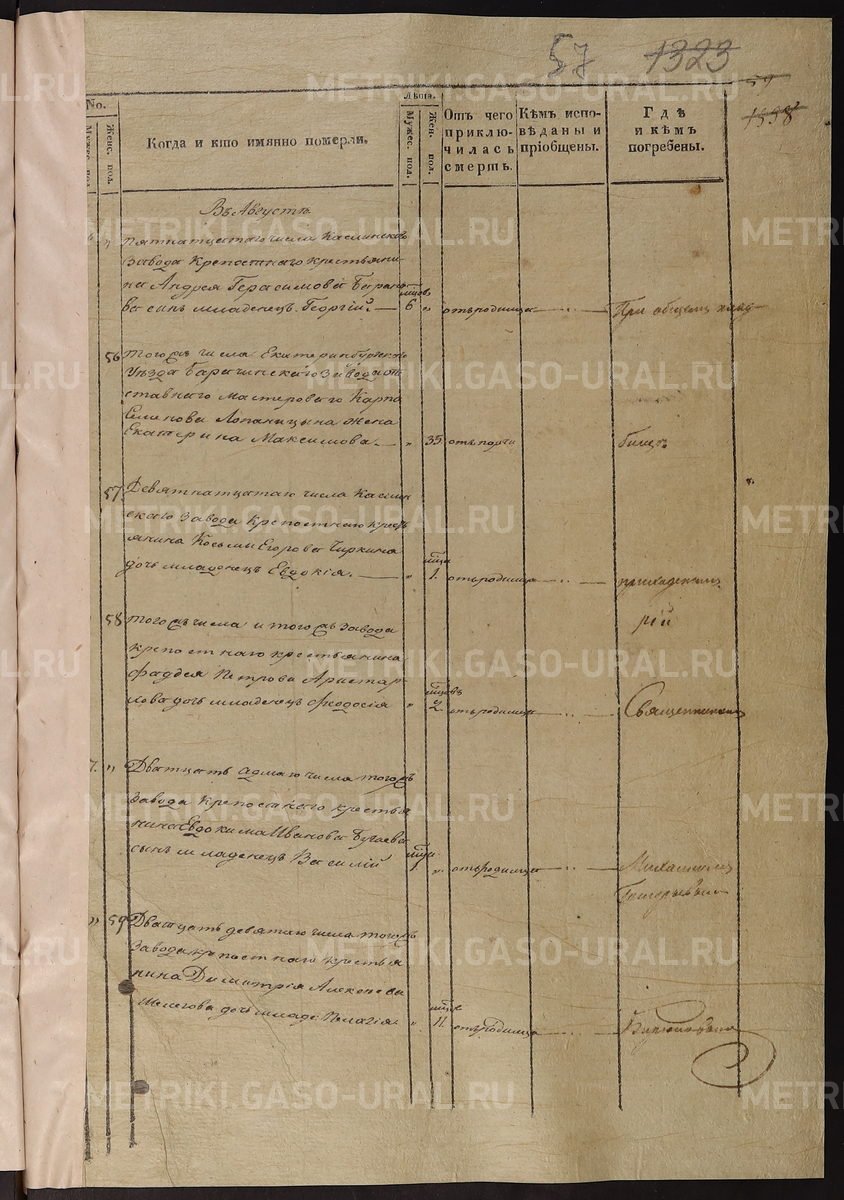 57 1323
59
1898
No.
Мужес. пол.
Женс. пол.
Когда и кто имянно померли.
Лѣта.
Мужес. пол.
Жен. пол.
Отъ чего приключилась смерть.
Кѣмъ исповѣданы и пріобщены.
Гдѣ и кѣмъ погребены.
Въ Августѣ.
Пятнатцатаго числа Каслинскаго
завода крепостнаго крестьяни-
на Андрея Герасимова
ва сынъ младенецъ Георгій. мцовъ 6 „ отъ родимца При общемъ клад-
56 того жъ числа Екатеринбургскаго
уѣзда завода от-
ставнаго мастероваго Карпа
Семенова Лопаницына жена
Екатерина Максимова „ 35 отъ порчи бищѣ
57 Девятнатцатаго числа Каслин-
скаго завода крепостнаго кресть-
янина Косьмы Егорова Чиркина
дочь младенецъ Евдокія. „ мца 1. отъ родимца приходскимъ
58 того жъ числа и того жъ завода
крепостнаго крестьянина рій
Фаддея Петрова Аристар-
хова дочь младенецъ Феодосія „ мцовъ 2. отъ родимца Священникомъ
7. „ Дватцать седмаго числа того жъ
завода крепостнаго крестья-
нина Евдокима Иванова Бугаева
сынъ младенецъ Василій мца 1. „ отъ родимца Михаиломъ
„ 59 Дватцать девятаго числа того жъ
завода крепостнаго крестья-
нина Димитрія Алексеева
дочь младе: Пелагія. „ мцов 11. отъ родимца
METRIKI.GASO-URAL.RU